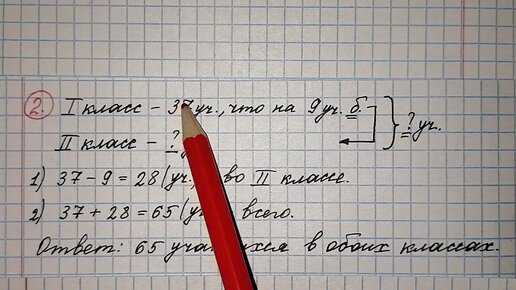 2. I класс – 37 уч., что на 9 уч. б. } ? уч.
II класс – ?
1) 37 – 9 = 28 (уч.) во II классе.
2) 37 + 28 = 65 (уч.) всего.
Ответ: 65 учащихся в обоих классах.